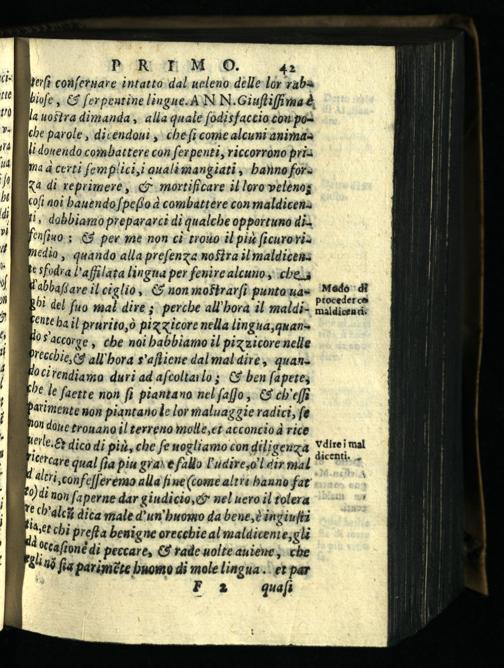 PRIMO. 42
tersi conseruare intatto dal ueleno delle lor rab-
biose, & serpentine lingue. ANN. Giustissima è
la uostra dimanda, alla quale sodisfaccio con po-
che parole, dicendoui, che si come alcuni anima-
li douendo combattere con serpenti, riccorrono pri-
ma à certi semplici, i quali mangiati, hanno for-
za di reprimere, & mortificare il loro veleno;
cosi noi hauendo spesso à combattere con maldicen-
ti, dobbiamo prepararci di qualche opportuno di-
fensiuo; & per me non ci trouo il più sicuro ri-
medio, quando alla presenza nostra il maldicen-
te sfodra l'affilata lingua per ferire alcuno, che
d'abbassare il ciglio, & non mostrarsi punto ua-
ghi del suo mal dire; perche all'hora il maldi-
cente ha il prurito, ò pizzicore nella lingua, quan-
do s'accorge, che noi habbiamo il pizzicore nelle
orecchie, & all'hora s'astiene dal mal dire, quan-
do ci rendiamo duri ad ascoltarlo; & ben sapete,
che le saette non si piantano nel sasso, & ch'essi
parimente non piantano le lor maluaggie radici, se
non doue trouano il terreno molle, et acconcio à rice
uerle. Et dico di più, che se uogliamo con diligenza
ricercare qual sia piu graue fallo l'udire, o'l dir mal
d'altri, confesseremo alla fine (come altri hanno fat
to) di non saperne dar giudicio, & nel uero il tolera
re ch'alcũ dica male d'un'huomo da bene, è ingiusti
tia, et chi presta benigne orecchie al maldicente, gli
dà occasione di peccare, & rade uolte auiene, che
egli nõ sia parimẽte huomo di mole lingua. et par
F 2 quasi
Modo di
proceder cõ
maldicenti.
Vdire i mal
dicenti.